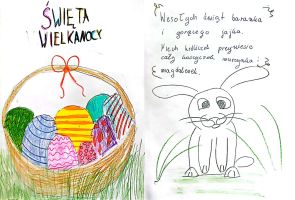 ŚWIĘTA
WIELKANOCY
Wesołych świąt baranka
i gorącego jajka.
Niech króliczek przyniesie
cały koszyczek
magdalenek.